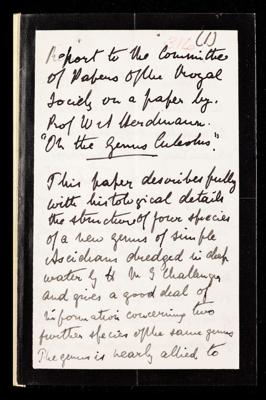 (1)
316
Report to the Committee
of Papers of the Royal
Society on a paper by.
Prof W A Herdmann.
"On the genus Culeolus".
This paper describes fully
with histological details
the structure of four species
of a new genus of simple
Ascidians dredged in deep
water by H M S Challenger
and gives a good deal of
information concerning two
further species of the same genus
The genus is nearly allied to